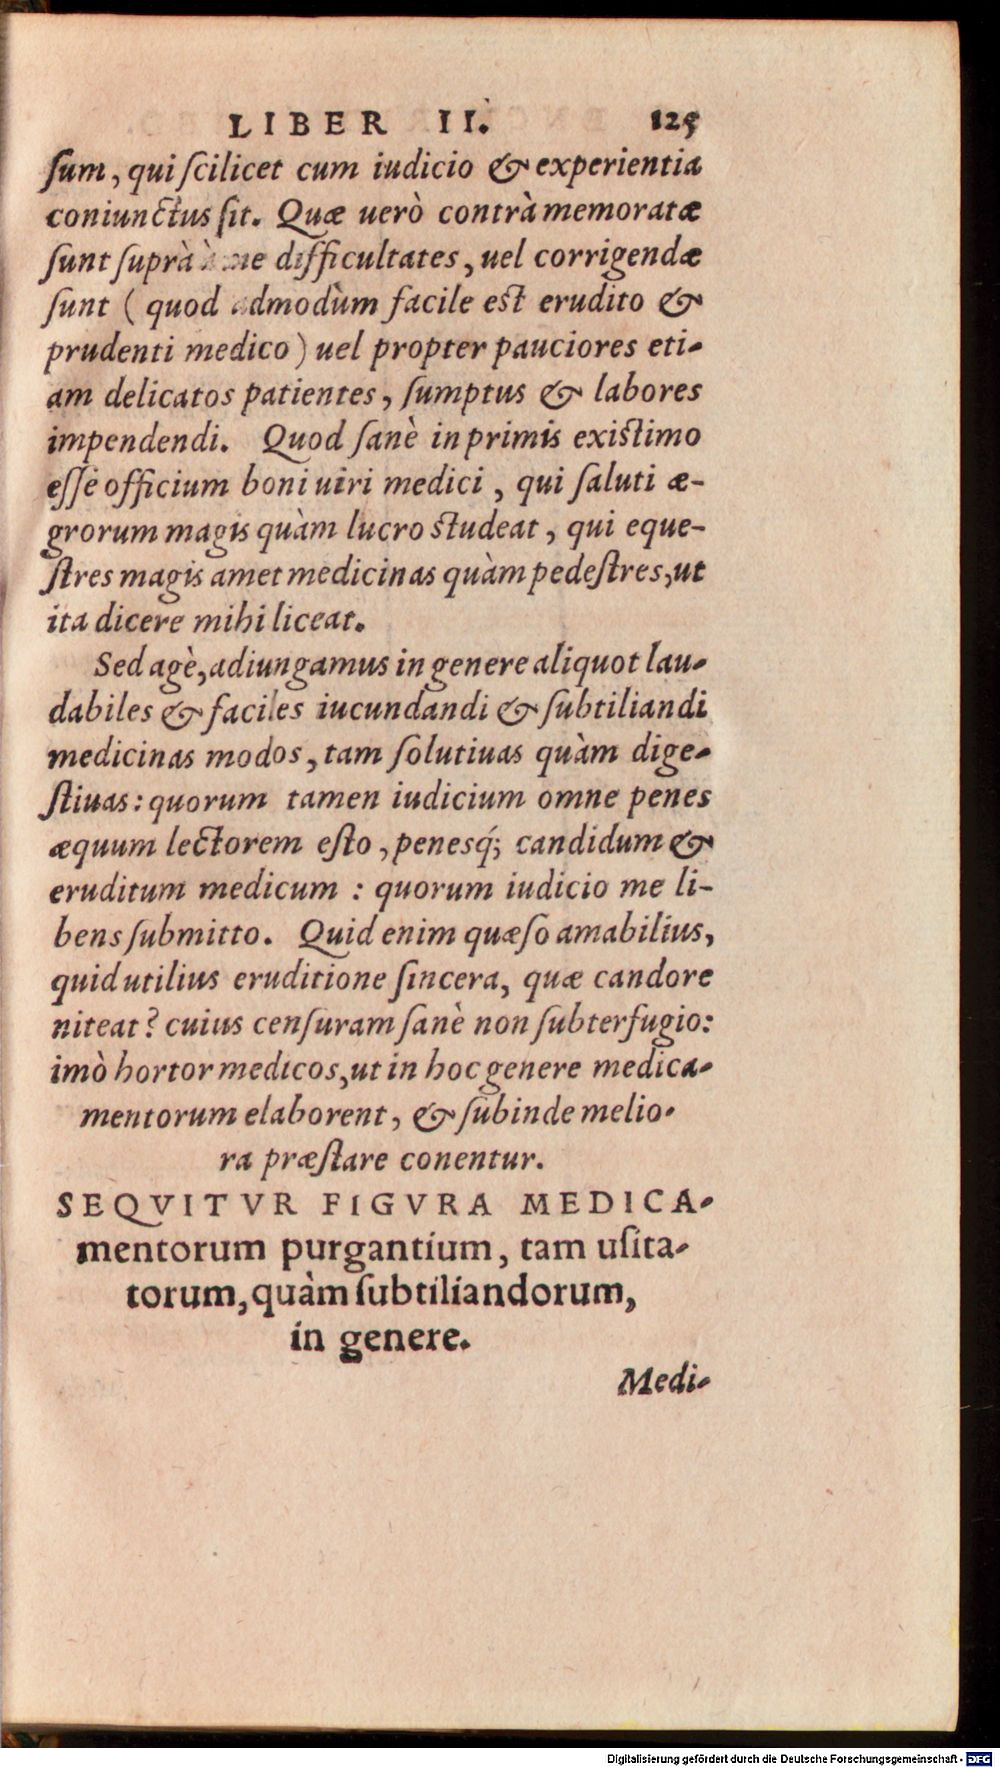 LIBER II. 125
sum, qui scilicet cum iudicio & experientia
coniunctus sit. Quæ uerò contrà memoratæ
sunt suprà à me difficultates, uel corrigendæ
sunt ( quod admodùm facile est erudito &
prudenti medico ) uel propter pauciores eti-
am delicatos patientes, sumptus & labores
impendendi. Quod sanè inprimis existimo
esse officium boni uiri medici, qui saluti æ-
grorum magis quàm lucro studeat, qui eque-
stres magis amet medicinas quàm pedestres, ut
ita dicere mihi liceat.
Sed agè, adiungamus in genere aliquot lau-
dabiles & faciles iucundandi & subtiliandi
medicinas modos, tam solutiuas quàm dige-
stiuas: quorum tamen iudicium omne penes
æquum lectorem esto, penesq́; candidum &
eruditum medicum : quorum iudicio me li-
bens submitto. Quid enim quæso amabilius,
quid utilius eruditione sincera, quæ candore
niteat? cuius censuram sanè non subterfugio:
imò hortor medicos, ut in hoc genere medica-
mentorum elaborent, & subinde melio-
ra præstare conentur.
SEQVITVR FIGVRA MEDICA-
mentorum purgantium, tam usita-
torum, quàm subtiliandorum,
in genere.
Medi-
Digitalisierung gefördert durch die Deutsche Forschungsgemeinschaft - DFG